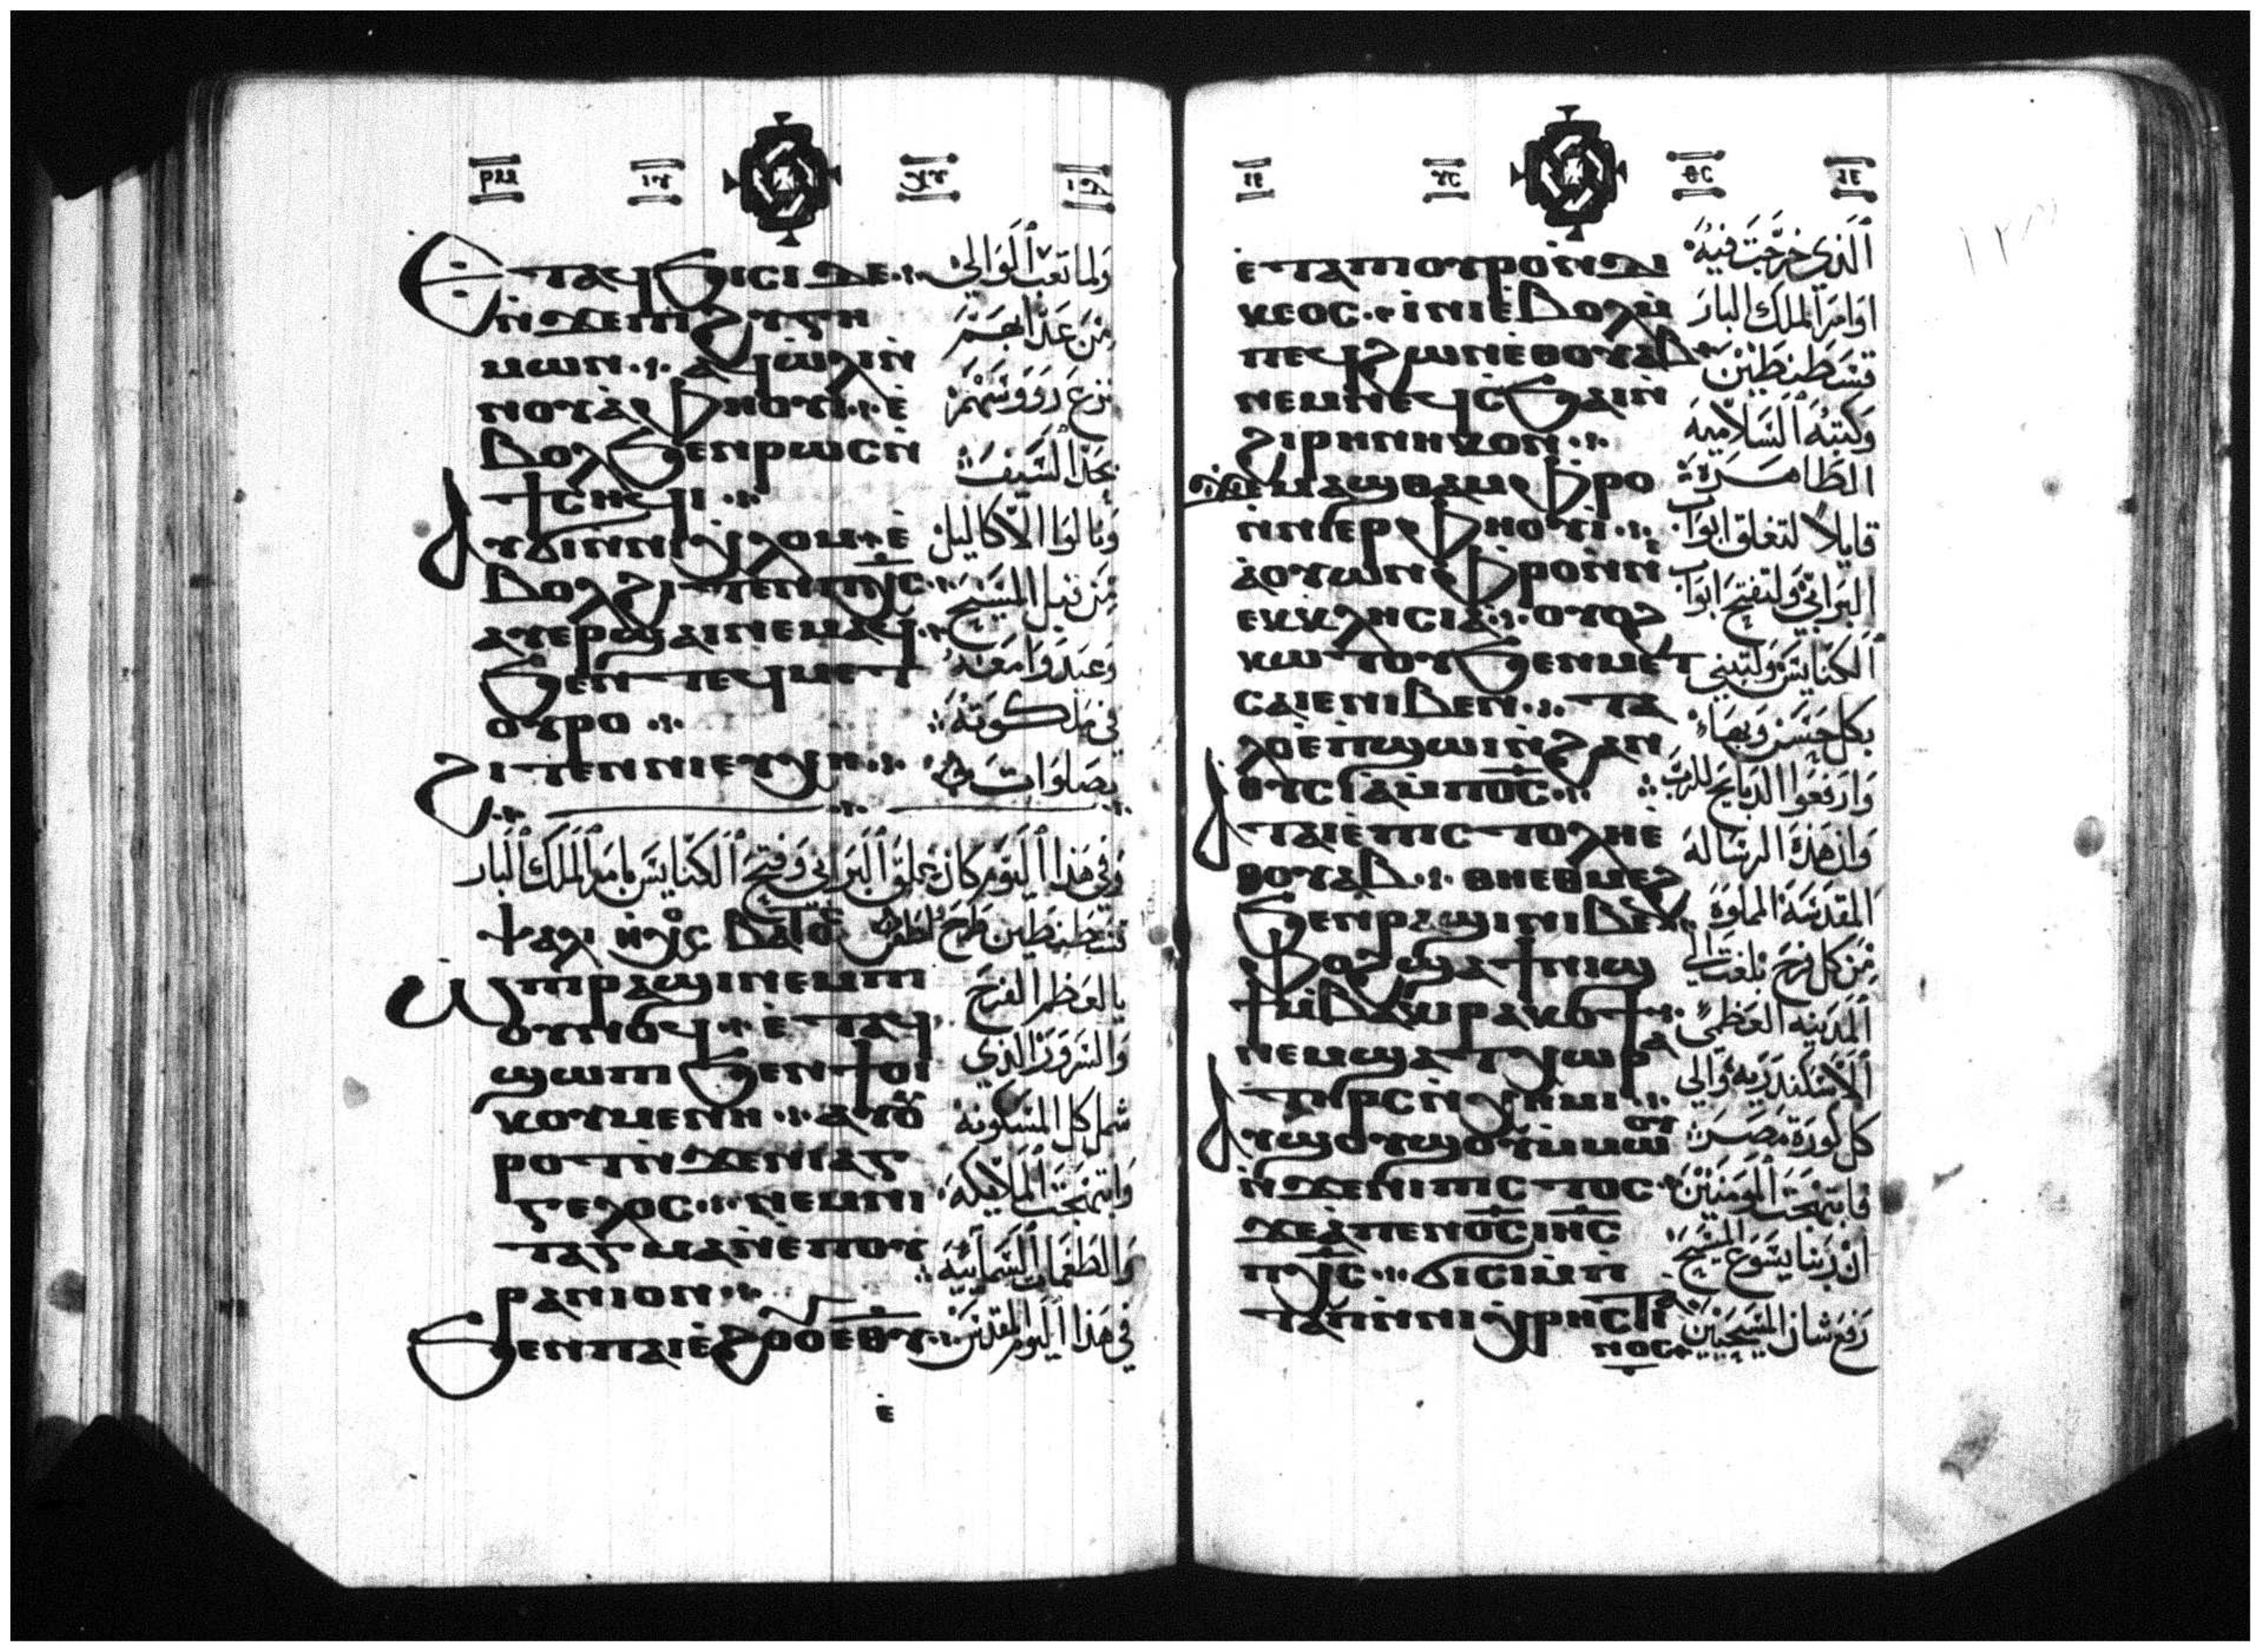 Ⲉⲧⲁϥϧⲓⲥⲓ ⲇⲉ
ⲛ̀ϫⲉⲡⲓϩⲩⲅⲏ
ⲙⲱⲛ ⲁϥⲱ̀ⲗⲓ ⲛ̀
ⲛⲟⲩⲁ̀ⲫⲏⲟⲩⲓ ⲉ̀
ⲃⲟⲗ ϧⲉⲛ ⲣⲱⲥ ⲛ̀
ϯⲥⲏϥⲓ
ⲁⲩϭⲓ ⲛ̀ⲛⲓⲭⲗⲟⲙ ⲉ̀
ⲃⲟⲗ ϩⲓⲧⲉⲛ ⲡⲭ̅ⲥ̅
ⲁⲩⲉⲣϣⲁⲓ ⲛⲉⲙⲁϥ
ϧⲉⲛ ⲧⲉϥⲙⲉⲧ
ⲟⲩⲣⲟ
ϩⲓⲧⲉⲛ ⲛⲓⲉⲩⲭⲏ
ولما تعب الوالي
من عذابهم
نزع رووسهم
بحد السيف
ونالوا الاكاليل
من قبل المسيح
وعيدوا معه
في ملكوته
بصلوات
وفي هذا اليوم كان غلق البرابي وفتح الكنايس بامر الملك البار
قسطنطين طرح واطس ⲃⲁⲧⲟⲥ
ⲡⲣⲁϣⲓ ⲛⲉⲙ ⲡ
ⲟⲩⲛⲟϥ ⲉ̀ⲧⲁϥ
ϣⲱⲡⲓ ϧⲉⲛ ϯⲟⲓ
ⲕⲟⲩⲙⲉⲛⲏ ⲁⲩⲟ̀
ⲣⲟⲧ ⲛ̀ϫⲉⲛⲓⲁⲅ
ⲅⲉⲗⲟⲥ ⲛⲉⲙ ⲛⲓ
ⲧⲁⲅⲙⲁ ⲛ̀ⲉ̀ⲡⲟⲩ
ⲣⲁⲛⲓⲟⲛ
ϧⲉⲛ ⲡⲁⲓⲉ̀ϩⲟⲟⲩ ⲉⲑⲩ
يالعظم الفرح
والسرور الذي
شمل كل المسكونة
وابتهجت الملايكه
والطغمات السماييه
في هذا اليوم المقدس
ⲉ̀
ⲉ̀ⲧⲁ ⲡⲟⲩⲣⲟ ⲛ̀ⲇⲓ
ⲕⲉⲟⲥ ⲓ̀ⲛⲓ ⲉ̀ⲃⲟⲗ ⲙ̀
ⲡⲉϥϩⲱⲛ ⲉⲑⲟⲩⲁⲃ
ⲛⲉⲙ ⲛⲉϥⲥϧⲁⲓ ⲛ̀
ϩⲓⲣⲏⲛⲏⲕⲟⲛ
ϫⲉ ⲙⲁϣⲑⲁⲙ ⲫⲣⲟ
ⲛ̀ⲛⲓⲉⲣⲫⲏⲟⲩⲓ
ⲁ̀ⲟⲩⲱⲛ ⲫⲣⲟ ⲛ̀ⲛⲓ
ⲉⲕⲕⲗⲏⲥⲓⲁ ⲟⲩⲟϩ
ⲕⲱⲧⲟⲩ ϧⲉⲛ ⲙⲉⲧ
ⲥⲁⲓⲉ ⲛⲓⲃⲉⲛ ⲧⲁ
ⲗⲟ ⲉ̀ⲡϣⲱⲓ ⲛ̀ϩⲁⲛ
ⲑⲩⲥⲓⲁ ⲙ̀ⲡⲟ̅ⲥ̅
ⲁ ⲧⲁⲓⲉ̀ⲡⲓⲥⲧⲟⲗⲏ ⲉ̀
ⲑⲟⲩⲁⲃ ⲑⲏⲉⲑⲙⲉϩ
ϧⲉⲛ ⲣⲁϣⲓ ⲛⲓⲃⲉⲛ
ⲫⲟϩ ϣⲁ ϯⲛⲓϣ
ϯ ⲙ̀ⲃⲁⲕⲓ ⲣⲁⲕⲟϯ
ⲛⲉⲙ ϣⲁ ⲧⲭⲱⲣⲁ
ⲧⲏⲣⲥ ⲛ̀ⲭⲏⲙⲓ
ⲁⲩϣⲟⲩϣⲟⲩ ⲙ̀ⲙⲱⲟⲩ
ⲛ̀ϫⲉⲛⲓⲡⲓⲥⲧⲟⲥ
ϫⲉ ⲁ̀ ⲡⲉⲛⲟ̅ⲥ̅ ⲓⲏ̅ⲥ̅
ⲡⲭ̅ⲥ̅ ϭⲓⲥⲓ ⲙ̀ⲡ
ⲧⲁⲡ ⲛ̀ⲛⲓⲭⲣⲏⲥⲧⲓⲁ
ⲛⲟⲥ
الذي خرجت فيه
اوامر الملك البار
قسطنطين
وكتبه السلاميه
الطاهره
قايلا لتغلق ابواب
البرابي ولتفتح ابواب
الكنايس ولتبني
بكل حسن وبهاء
وارفعوا الدبايح للرب
وان هذه الرساله
المقدسه المملوة
من كل فرح بلغت الي
المدينه العظمي
الاسكندريه والي
كل كورة مصر
فابتهجت المومنين
ان ربنا يسوع المسيح
رفع شان المسيحيين